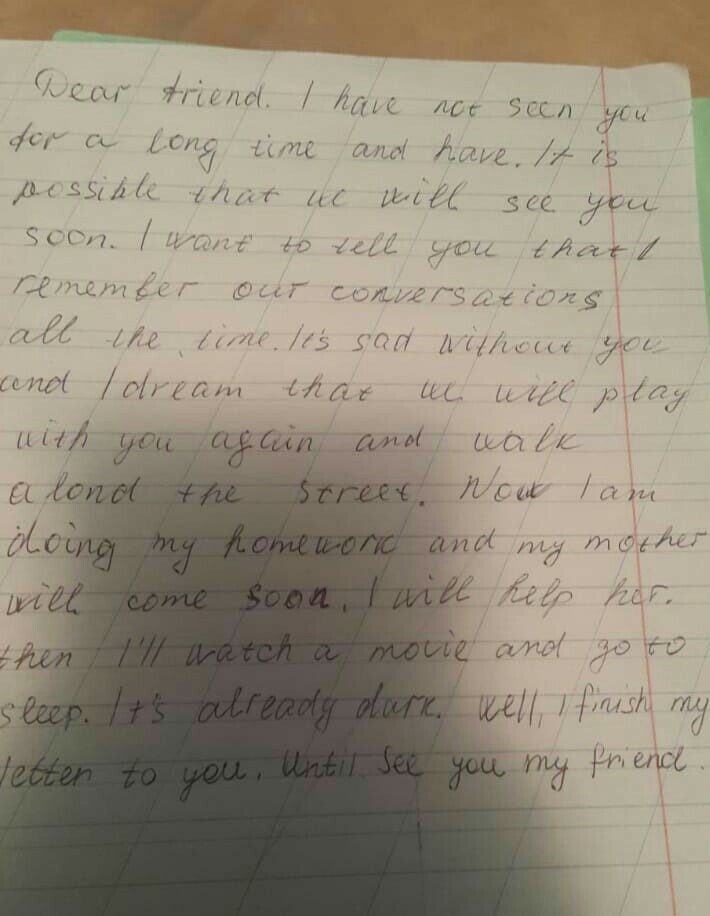 Dear friend. I have not seen you
for a long time and have. It is
possible that we will see you
soon. I want to tell you that I
remember our conversations
all the time. It's sad without you
and I dream that we will play
with you again and walk
alond the street. Now I am
doing my homework and my mother
will come soon. I will help her.
then I'll watch a movie and go to
sleep. It's already dark. Well, I finish my
letter to you. Until see you my friend.